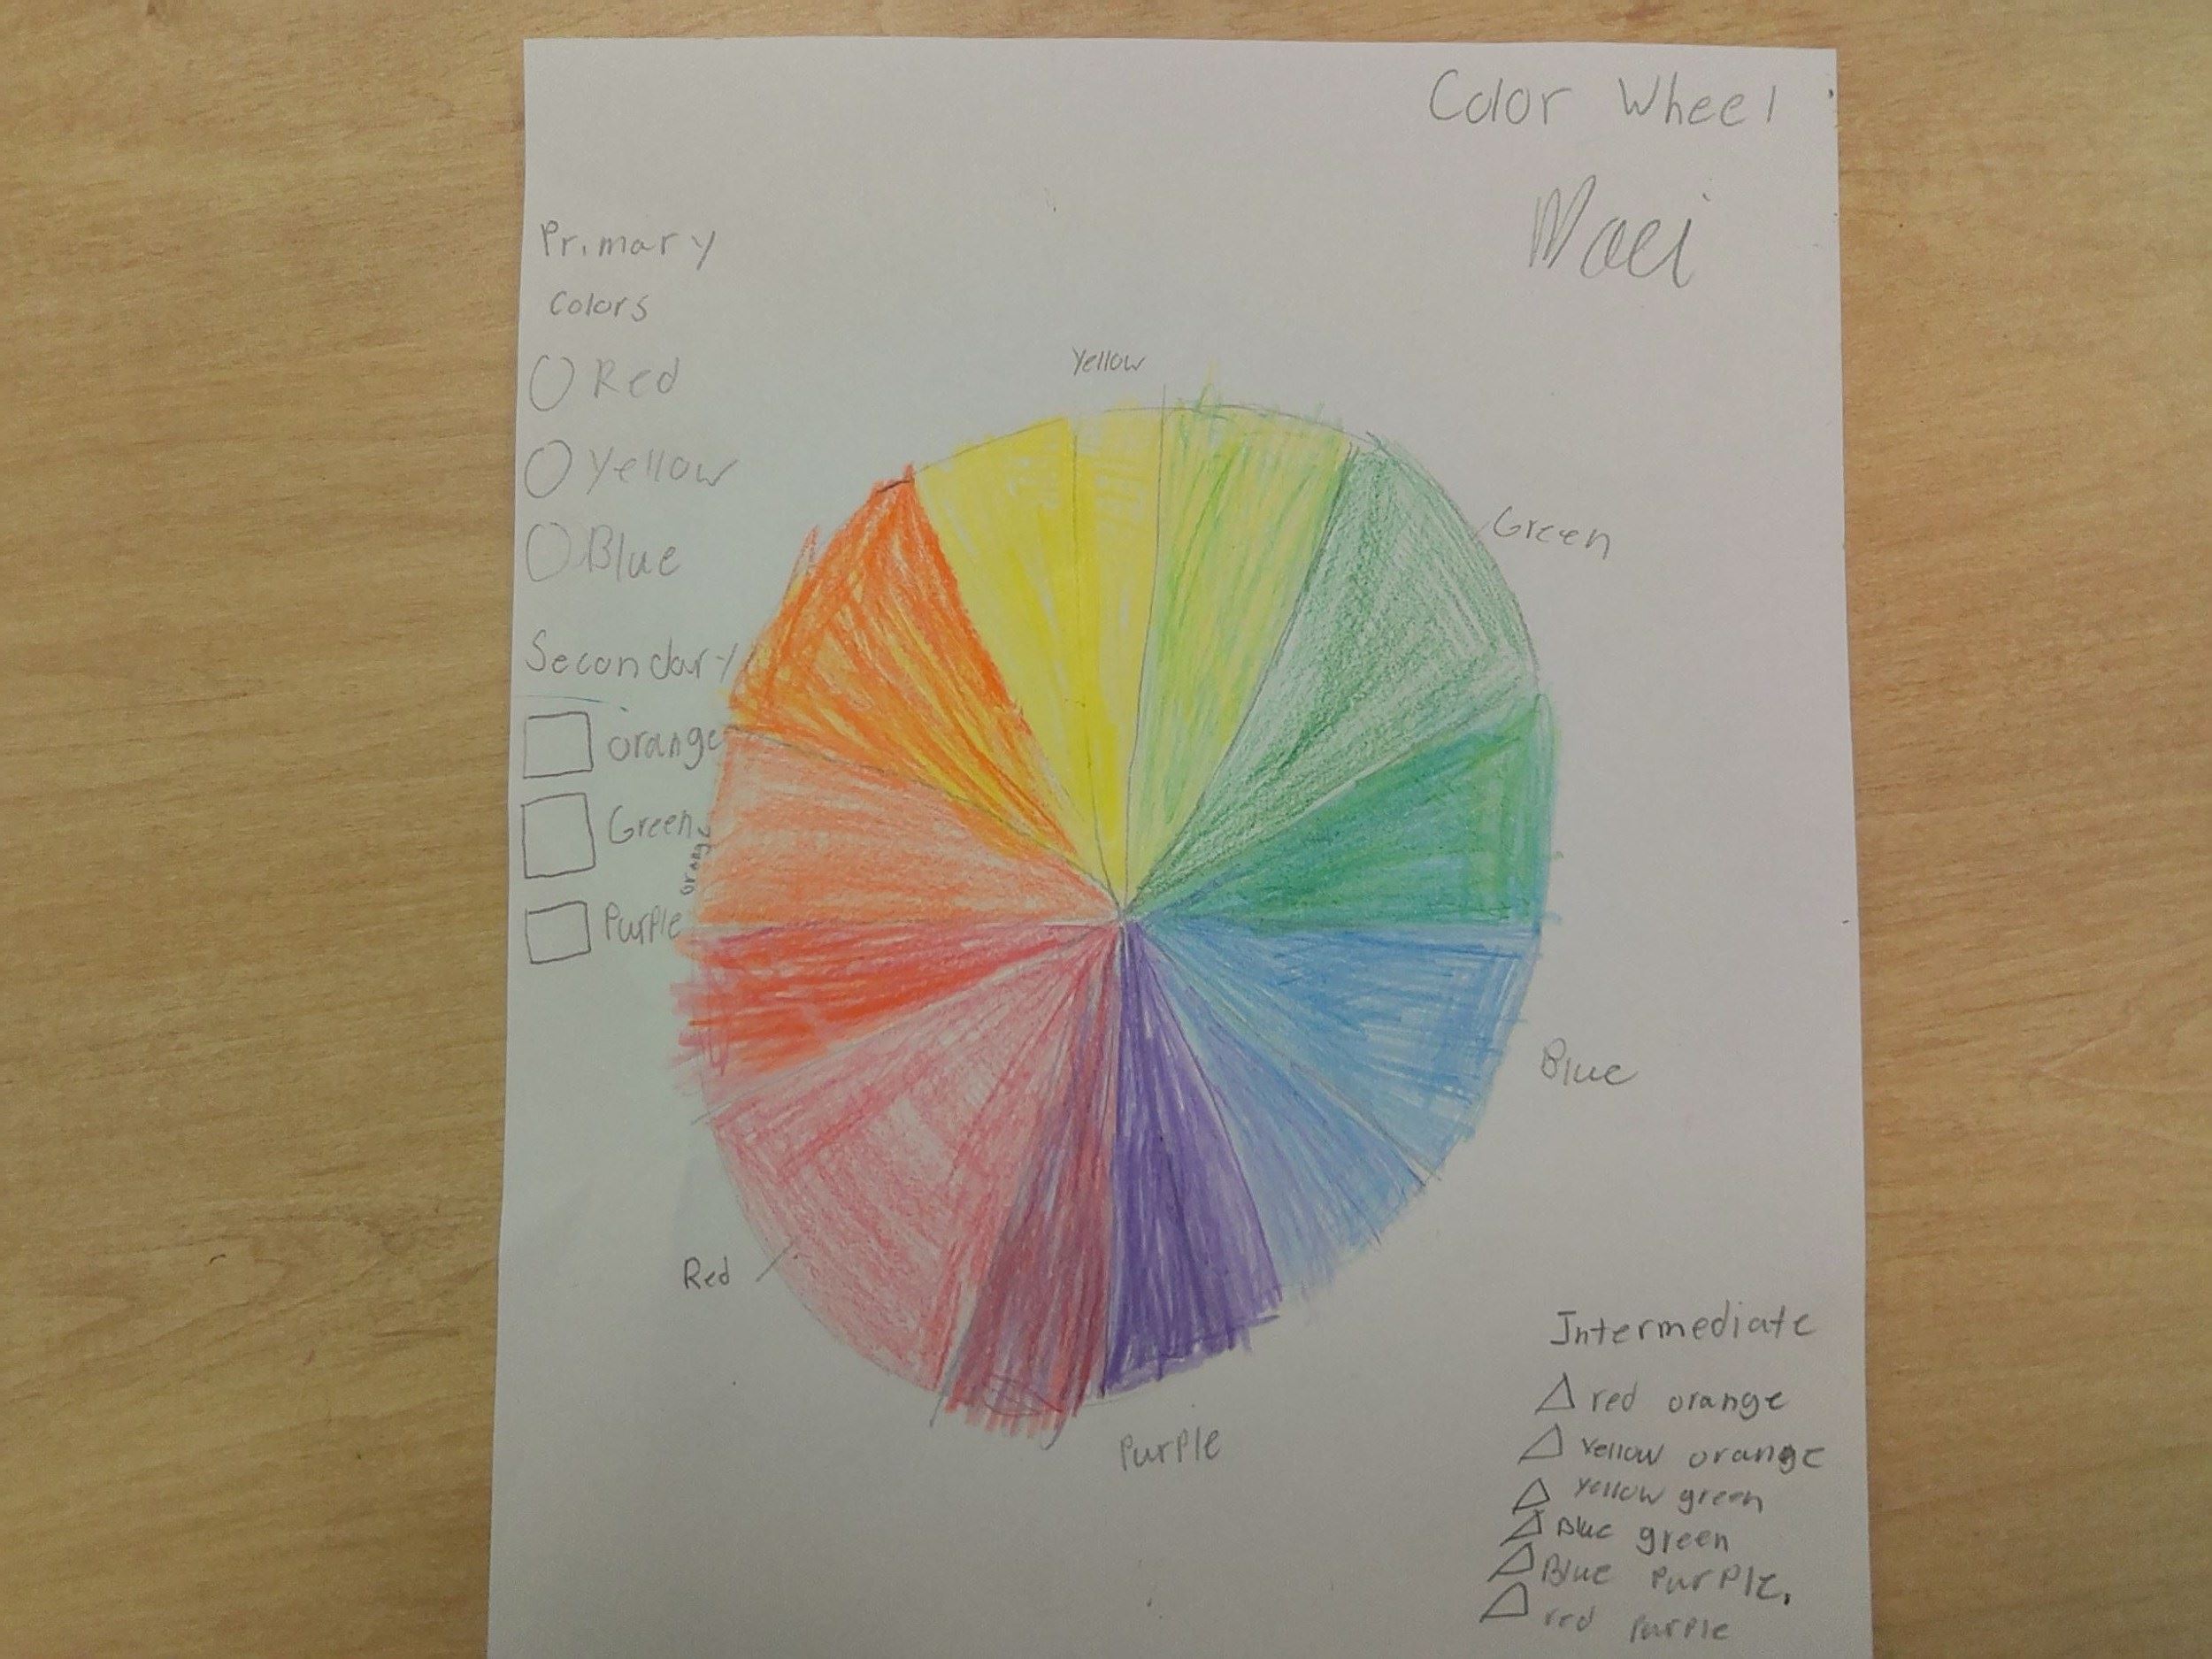 Color Wheel
Maci
Primary
Colors
Red
Yellow
Blue
Secondary
orange
Green
Purple
Yellow
Green
orange
Blue
Red
Purple
Intermediate
red orange
Yellow orange
Yellow green
Blue green
Blue Purple.
red Purple